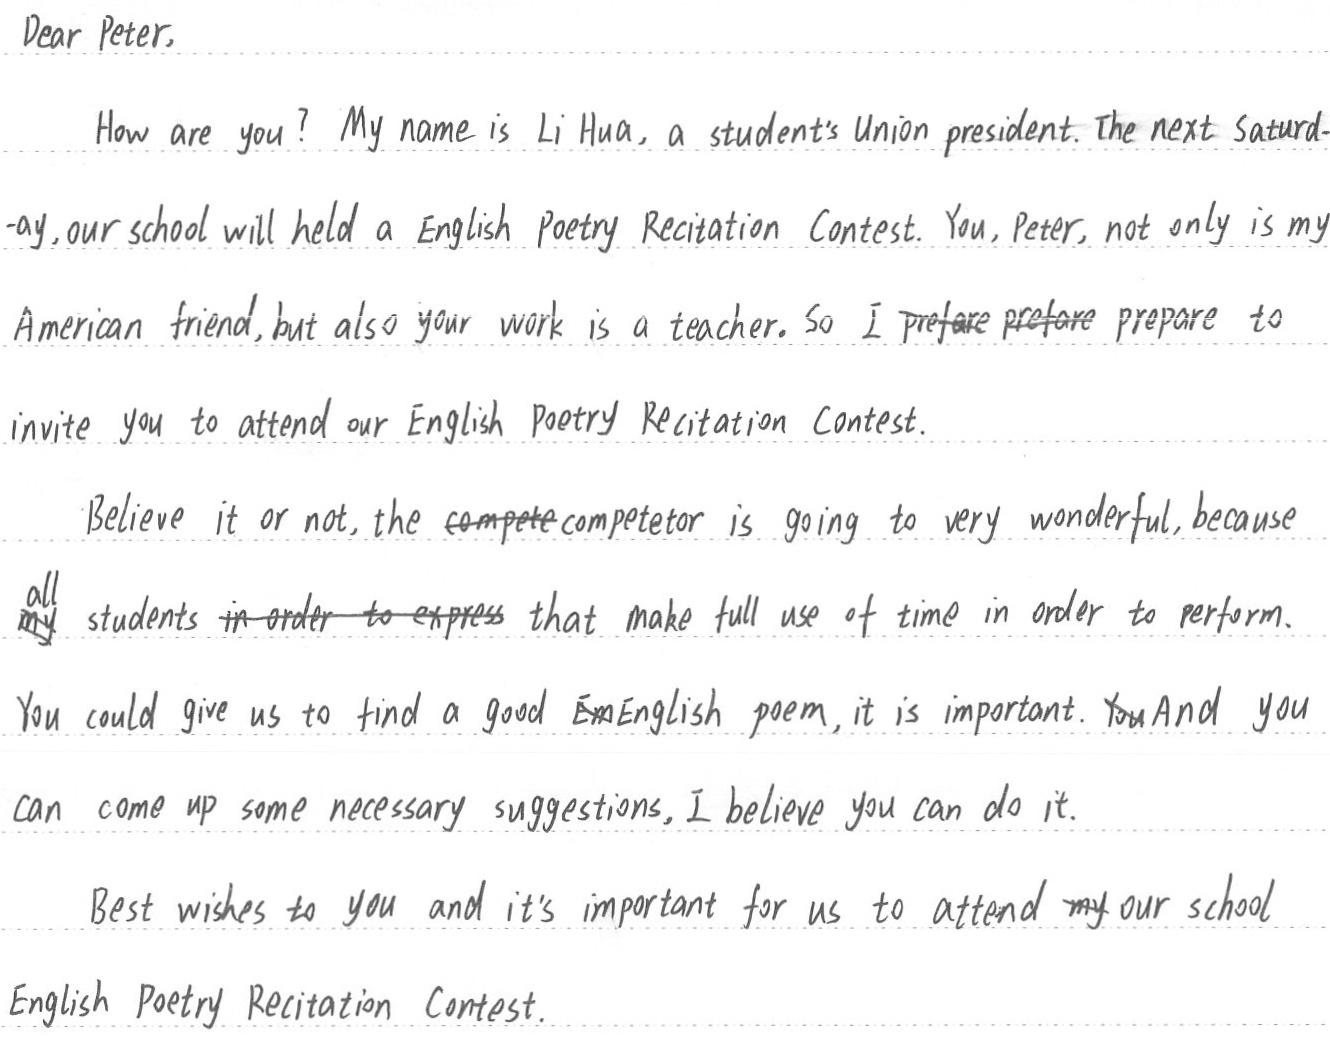 Dear Peter,
How are you? My name is Li Hua, a student's Union president. The next Saturd-
-ay, our school will held a English Poetry Recitation Contest. You, Peter, not only is my
American friend, but also your work is a teacher. So I prefare prefare prepare to
invite you to attend our English Poetry Recitation Contest.
Believe it or not, the compete competetor is going to very wonderful, because
all
my students in order to express that make full use of time in order to perform.
You could give us to find a good Em English poem, it is important. You And you
can come up some necessary suggestions, I believe you can do it.
Best wishes to you and it's important for us to attend my our school
English Poetry Recitation Contest.